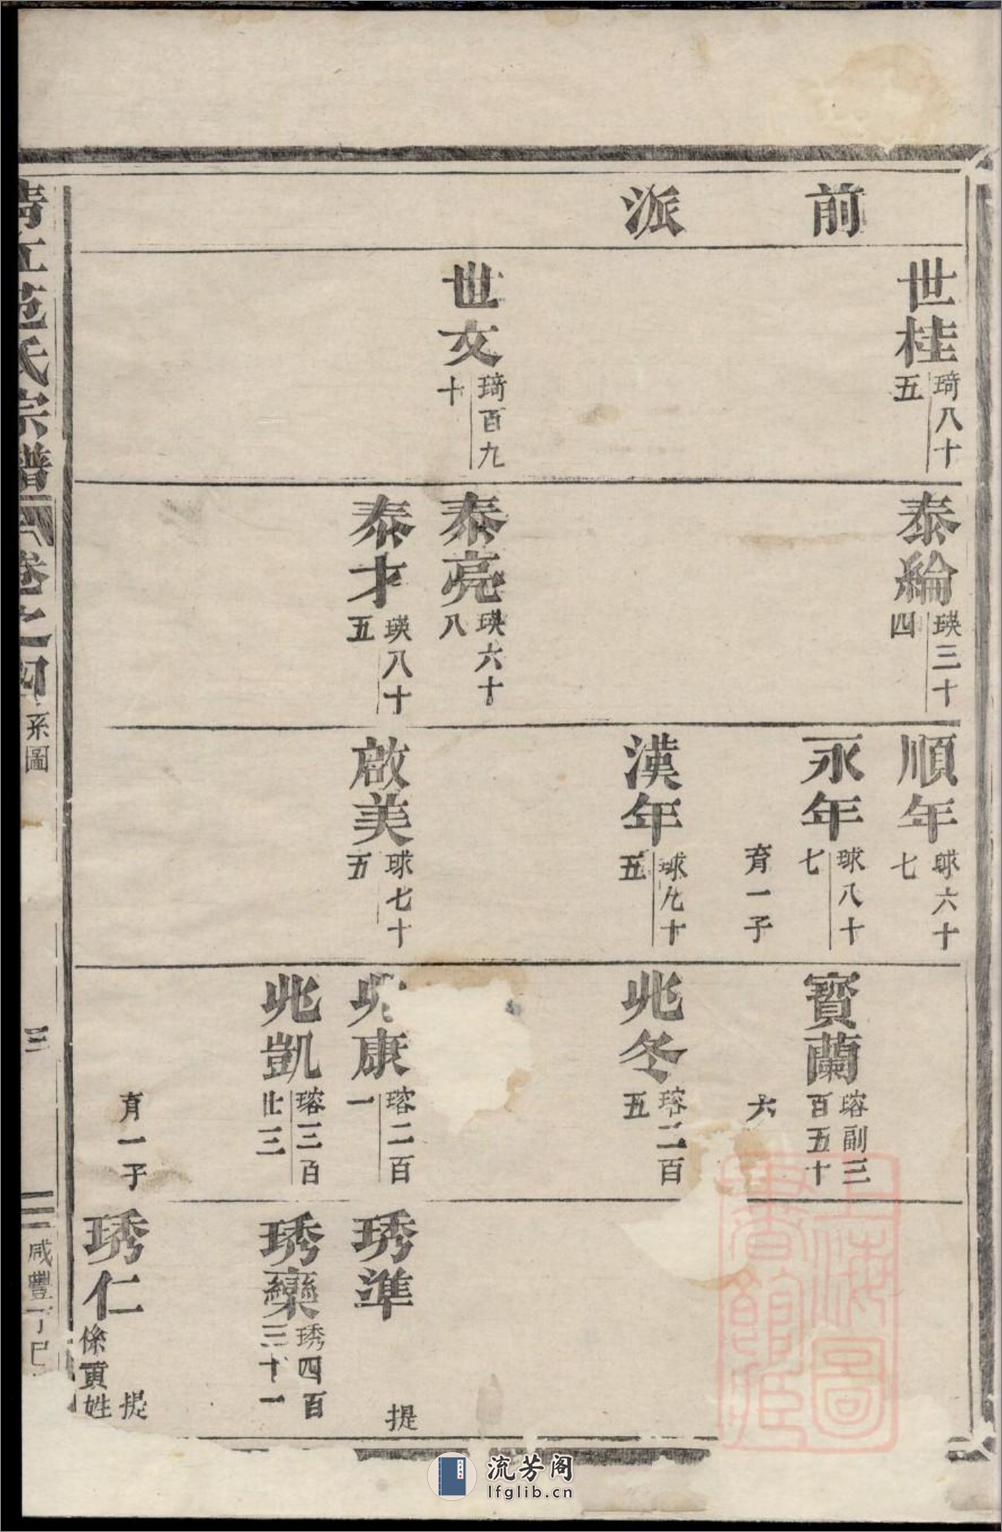 前派
世桂 琦八十五
世文 琦百九十
泰綸 瑛三十四
泰亮 瑛六十八
泰才 瑛八十五
順年 球六十七
永年 球八十七
育一子
漢年 球九十五
啟美 球七十五
寳蘭 瑢副三百五十六
兆冬 瑢二百五
兆康 瑢二百一
兆凱 瑢三百廿三
育一子
琇準 提
琇欒 琇四百三十一
琇仁 係賈姓 提
范氏宗譜 卷之四 系圖 三 咸豐丁巳
上海圖書館藏
流芳阁
lfglib.cn